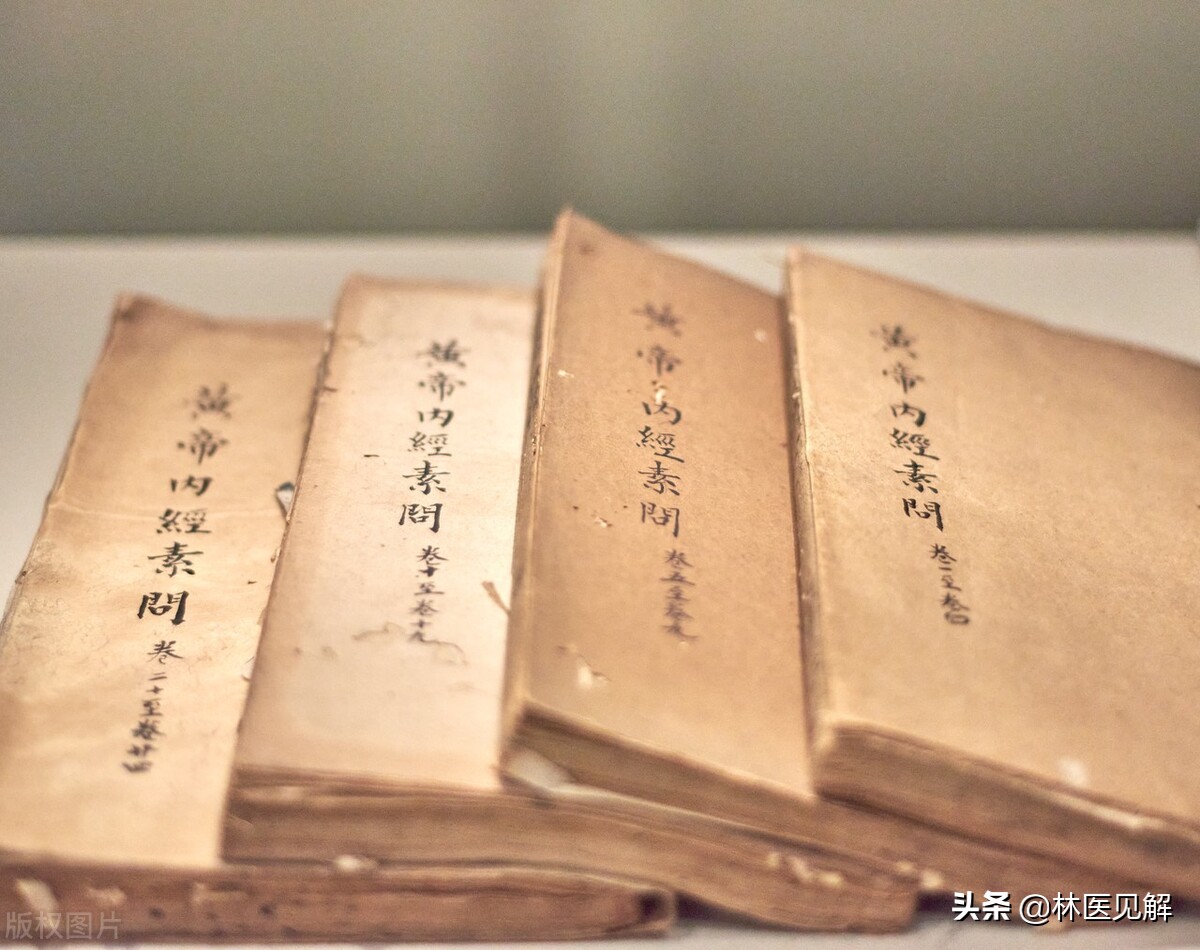 黃帝內經素問 卷一至卷四
黃帝內經素問 卷五至卷九
黃帝內經素問 卷十至卷十九
黃帝內經素問 卷二十至卷廿四
版权图片
头条 @林医见解